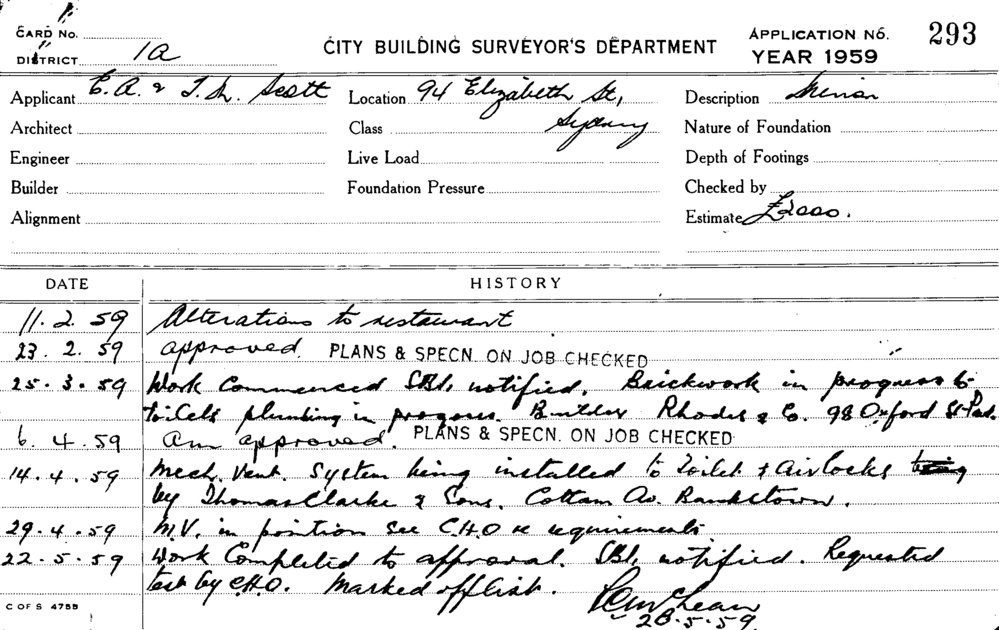 CARD No.
DISTRICT 1A
CITY BUILDING SURVEYOR'S DEPARTMENT
APPLICATION No. 293
YEAR 1959
Applicant E. A. & J. L. Scott
Location 94 Elizabeth St,
Description Minor
Architect
Class Sydney
Nature of Foundation
Engineer
Live Load
Depth of Footings
Builder
Foundation Pressure
Checked by
Alignment
Estimate £2000.
DATE HISTORY
11. 2. 59 Alterations to restaurant
23. 2. 59 approved. PLANS & SPECN. ON JOB CHECKED
25. 3. 59 Work Commenced SBI, notified. Brickwork in progress to
toilets plumbing in progress. Butler Rhodes & Co. 98 Oxford St Pad.
6. 4. 59 Am approved. PLANS & SPECN. ON JOB CHECKED
14. 4. 59 Mech. Vent. System being installed to Toilet & Airlocks being
by Thomas Clarke & Sons. Cottam Av. Bankstown.
29. 4. 59 M.V. in position see C.H.O re requirements
22. 5. 59 Work Completed to approval. SBI, notified. Requested
test by C.H.O. Marked off list.
28. 5. 59
C OF S 475B